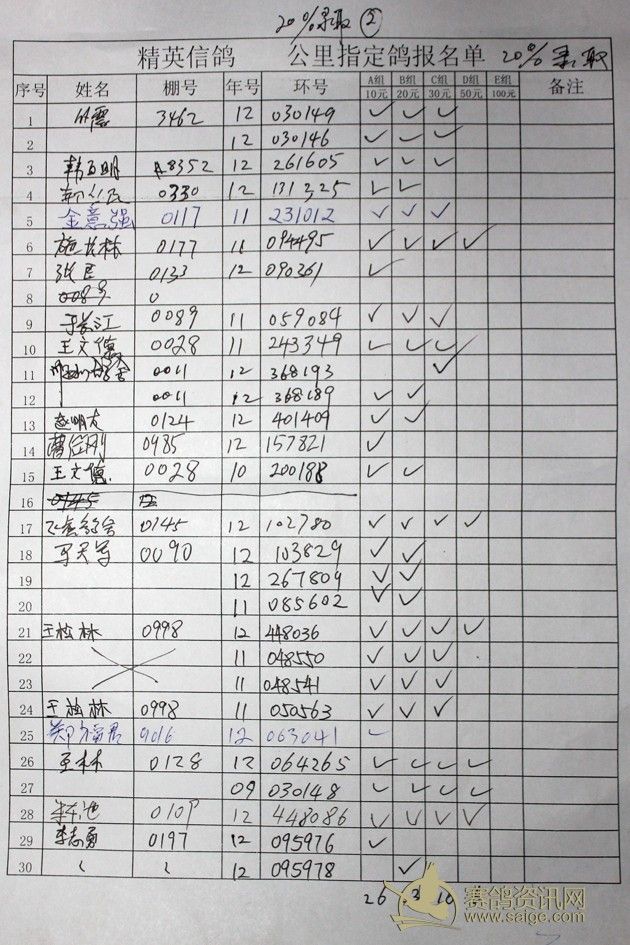 20% 录取 ②
精英信鸽 公里指定鸽报名单 20% 录取
序号 姓名 棚号 年号 环号 A组 10元 B组 20元 C组 30元 D组 50元 E组 100元 备注
1 3462 12 030149 ✓ ✓ ✓
2 12 030146 ✓ ✓ ✓
3 8352 12 261605 ✓ ✓ ✓
4 0330 12 131325 ✓ ✓
5 金意强 0117 11 231012 ✓ ✓ ✓
6 施长林 0177 11 094495 ✓ ✓ ✓ ✓
7 张 0133 12 090261 ✓
8
9 于长江 0089 11 059084 ✓ ✓ ✓
10 王文德 0028 11 243349 ✓ ✓ ✓
11 0011 12 368193 ✓
12 0011 12 368189 ✓ ✓
13 赵明友 0124 12 401409 ✓ ✓
14 曹 刚 0985 12 157821 ✓
15 王文德 0028 10 200188 ✓ ✓
16 0145
17 0145 12 102780 ✓ ✓ ✓ ✓
18 0090 12 103829 ✓ ✓
19 12 267809 ✓ ✓
20 11 085602 ✓ ✓
21 王松林 0998 12 448036 ✓ ✓ ✓ ✓
22 11 048550 ✓ ✓ ✓
23 11 048541 ✓ ✓ ✓
24 王松林 0998 11 050563 ✓ ✓ ✓
25 9016 12 063041 ✓
26 0128 12 064265 ✓ ✓ ✓ ✓
27 09 030148 ✓ ✓ ✓ ✓
28 0109 12 448086 ✓ ✓ ✓ ✓
29 李志勇 0197 12 095976 ✓
30 12 095978 ✓
26
赛鸽资讯网
www.saige.com